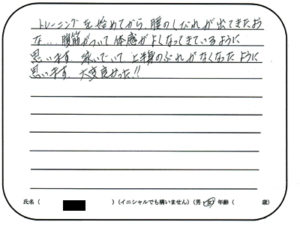 トレーニングを始めてから、腰のしびれが出てきたお
な… 腹筋がついて体感がよくなってきているように
思います 泳いでいて上半身のぶれがなくなったように
思います 大変良かった!!
氏名( )(イニシャルでも構いません)(男 年齢( 歳)